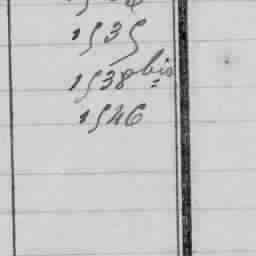 1535
1538 bis
1546